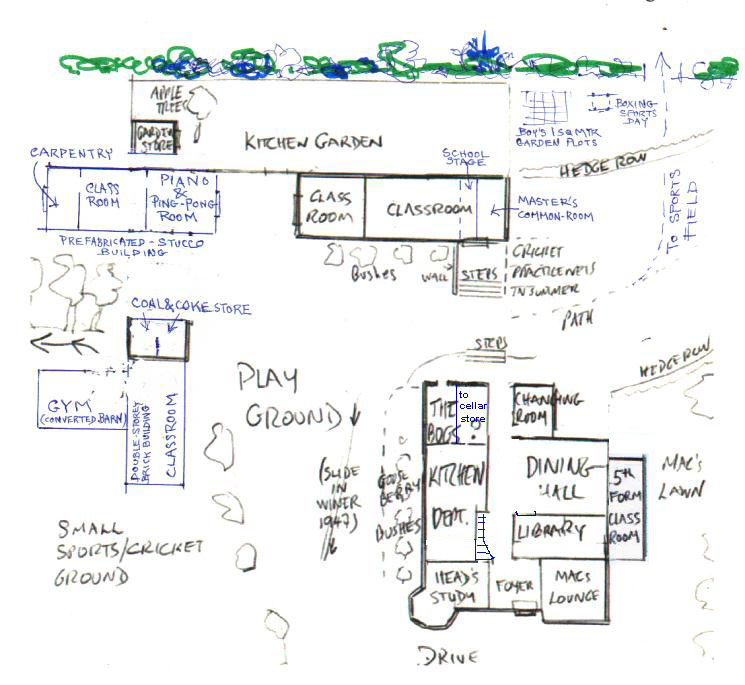 APPLE
TREES
GARDEN
STORE
KITCHEN GARDEN
BOY'S 1 SQ MTR
GARDEN PLOTS
BOXING-
SPORTS
DAY
HEDGE ROW
CARPENTRY
CLASS
ROOM
PIANO
&
PING-PONG
ROOM
PREFABRICATED-STUCCO
BUILDING
CLASS
ROOM
CLASSROOM
SCHOOL
STAGE
MASTER'S
COMMON-ROOM
TO SPORTS
FIELD
Bushes
WALL
STEPS
CRICKET
PRACTICE NETS
IN SUMMER
PATH
COAL & COKE STORE
GYM
(CONVERTED BARN)
DOUBLE-STOREY
BRICK BUILDING
CLASSROOM
PLAY
GROUND
(SLIDE
IN
WINER
1947)
SMALL
SPORTS/CRICKET
GROUND
STEPS
HEDGEROW
THE
BOGS
to
cellar
store
CHANGING
ROOM
GOOSE
BERRY
BUSHES
KITCHEN
DEPT.
DINING
HALL
LIBRARY
5th
FORM
CLASS
ROOM
MAC'S
LAWN
HEAD'S
STUDY
FOYER
MACS
LOUNGE
DRIVE